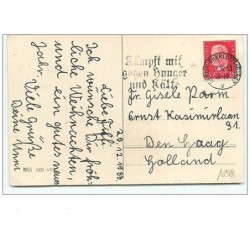 Liebe Gisl!
Ich wünsche Dir fröh-
liche Weihnachten,
und ein gutes neues
Jahr. Viele Grüße
Deine Anni
20.12.1933.
Kämpft mit
gegen Hunger
und Kälte
Dr. Gisele Parm
Ernst Kasimirlaan
31.
Den Haag
Holland